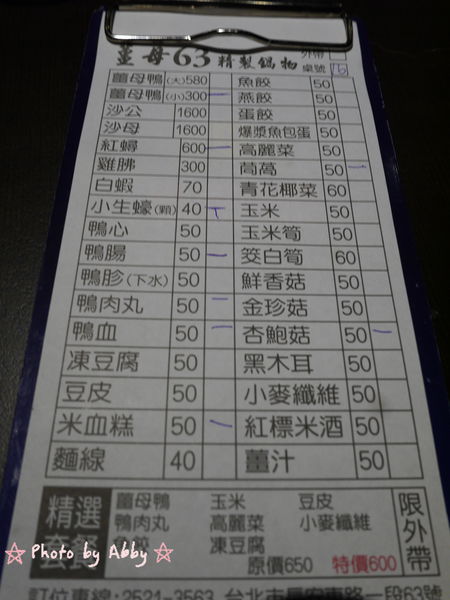 薑母63精製鍋物 外帶
桌號 16
薑母鴨(大) 580 魚餃 50
薑母鴨(小) 300 一 燕餃 50
沙公 1600 蛋餃 50
沙母 1600 爆漿魚包蛋 50
紅蟳 600 一 高麗菜 50
雞腿 300 茼萵 50 一
白蝦 70 青花椰菜 60
小生蠔(顆) 40 丅 玉米 50
鴨心 50 玉米筍 50
鴨腸 50 一 筊白筍 60
鴨胗(下水) 50 鮮香菇 50
鴨肉丸 50 一 金珍菇 50
鴨血 50 一 杏鮑菇 50 一
凍豆腐 50 黑木耳 50
豆皮 50 小麥纖維 50
米血糕 50 一 紅標米酒 50
麵線 40 薑汁 50
精選套餐 薑母鴨 玉米 豆皮 限外帶
鴨肉丸 高麗菜 小麥纖維
魚餃 凍豆腐
原價650 特價600
訂位專線:2521-3563 台北市長安東路一段63號
☆ Photo by Abby ☆